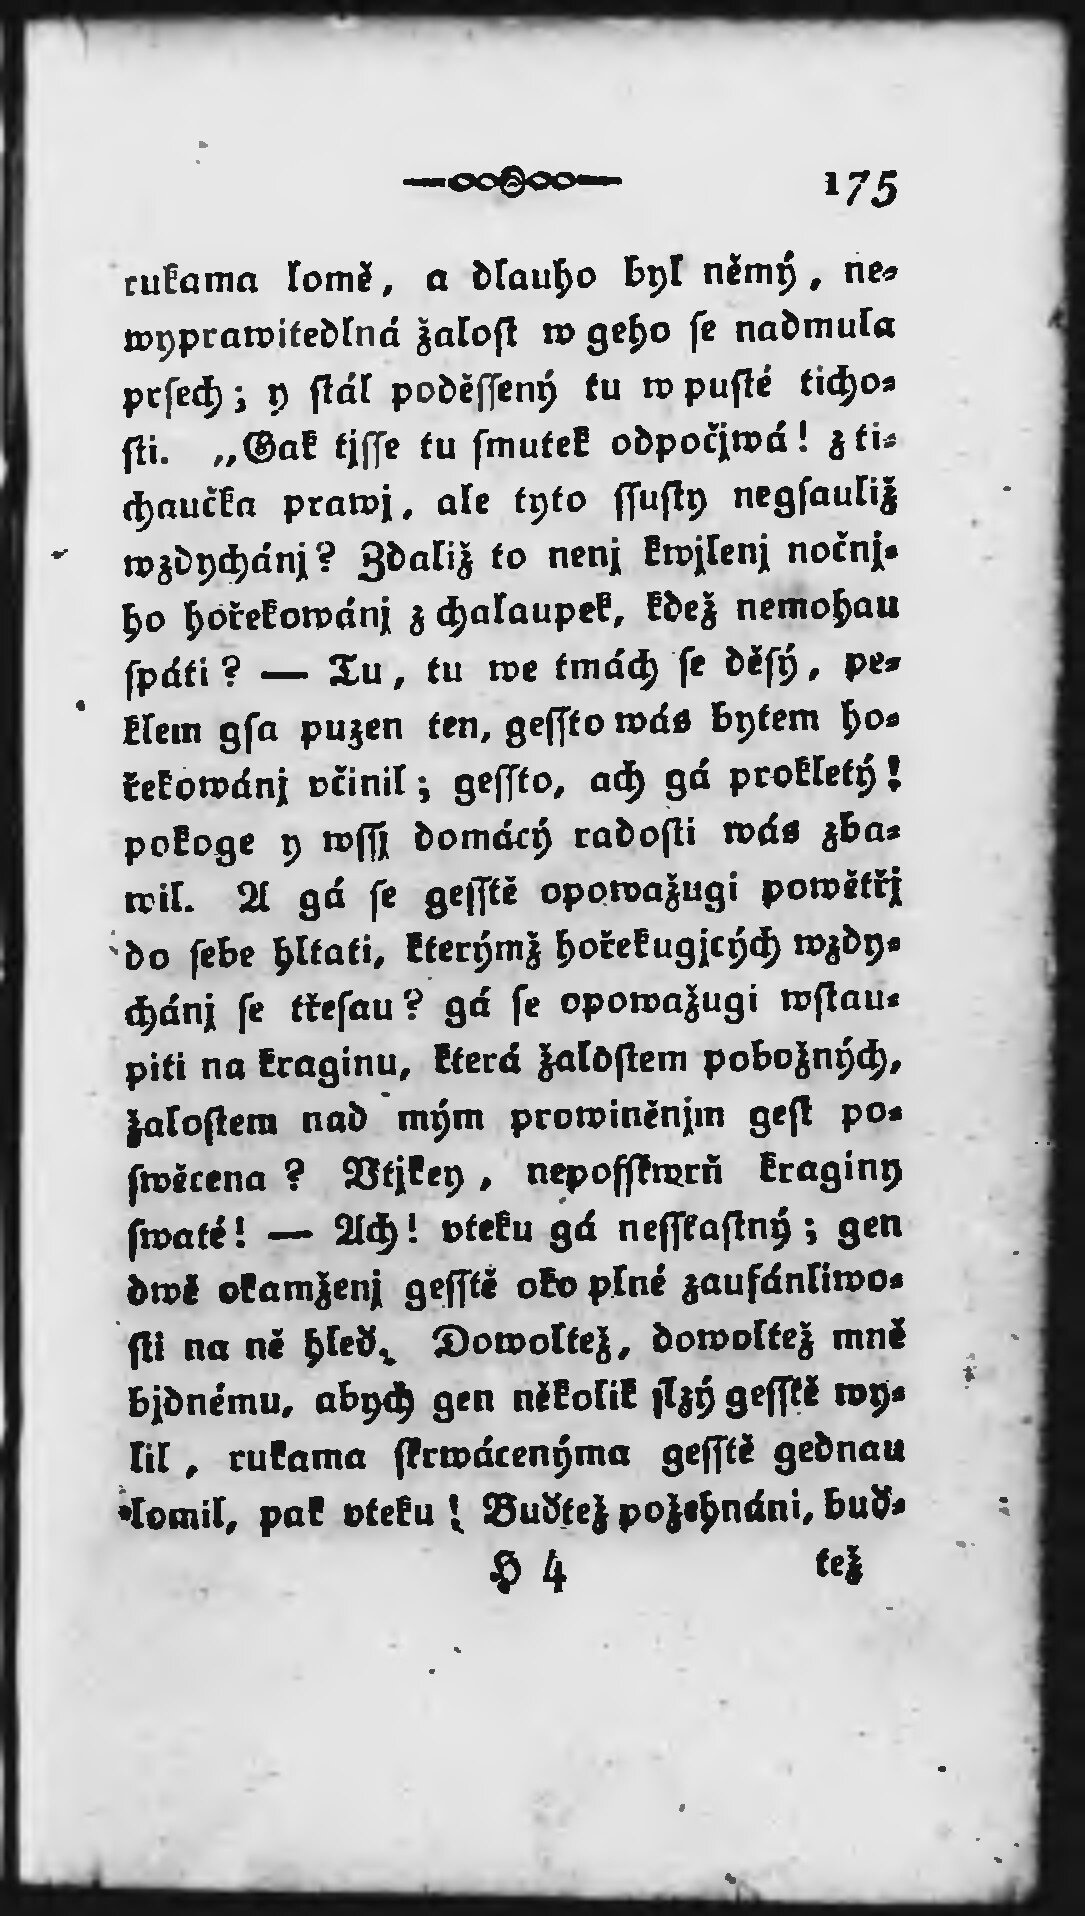 175
rukama lomě, a dlauho byl němý, ne-
wyprawitedlná žalost w geho ſe nadmula
prſech; y ſtál poděſſený tu w puſté ticho-
ſti. „Gak tjſſe tu ſmutek odpočjwá! z ti-
chaučka prawj, ale tyto ſſuſty negſauliž
wzdychánj? Zdaliž to nenj kwjlenj nočnj-
ho hořekowánj z chalaupek, kdež nemohau
ſpáti? — Tu, tu we tmách ſe děſý, pe-
klem gſa puzen ten, geſſto wás bytem ho-
řekowánj včinil; geſſto, ach gá prokletý!
pokoge y wſſj domácý radoſti wás zba-
wil. A gá ſe geſſtě opowažugi powětřj
do ſebe hltati, kterýmž hořekugjcých wzdy-
chánj ſe třeſau? gá ſe opowažugi wſtau-
piti na kraginu, která žaloſtem pobožných,
žaloſtem nad mým prowiněnjm geſt po-
ſwěcena? Vtjkey, nepoſſkwrň kraginy
ſwaté! — Ach! vteku gá neſſtaſtný; gen
dwě okamženj geſſtě oko plné zaufánliwo-
ſti na ně hleď. Dowoltež, dowoltež mně
bjdnému, abych gen několik ſlzý geſſtě wy-
lil, rukama ſkrwácenýma geſſtě gednau
lomil, pak vteku! Buďtež požehnáni, buď-
H 4
tež